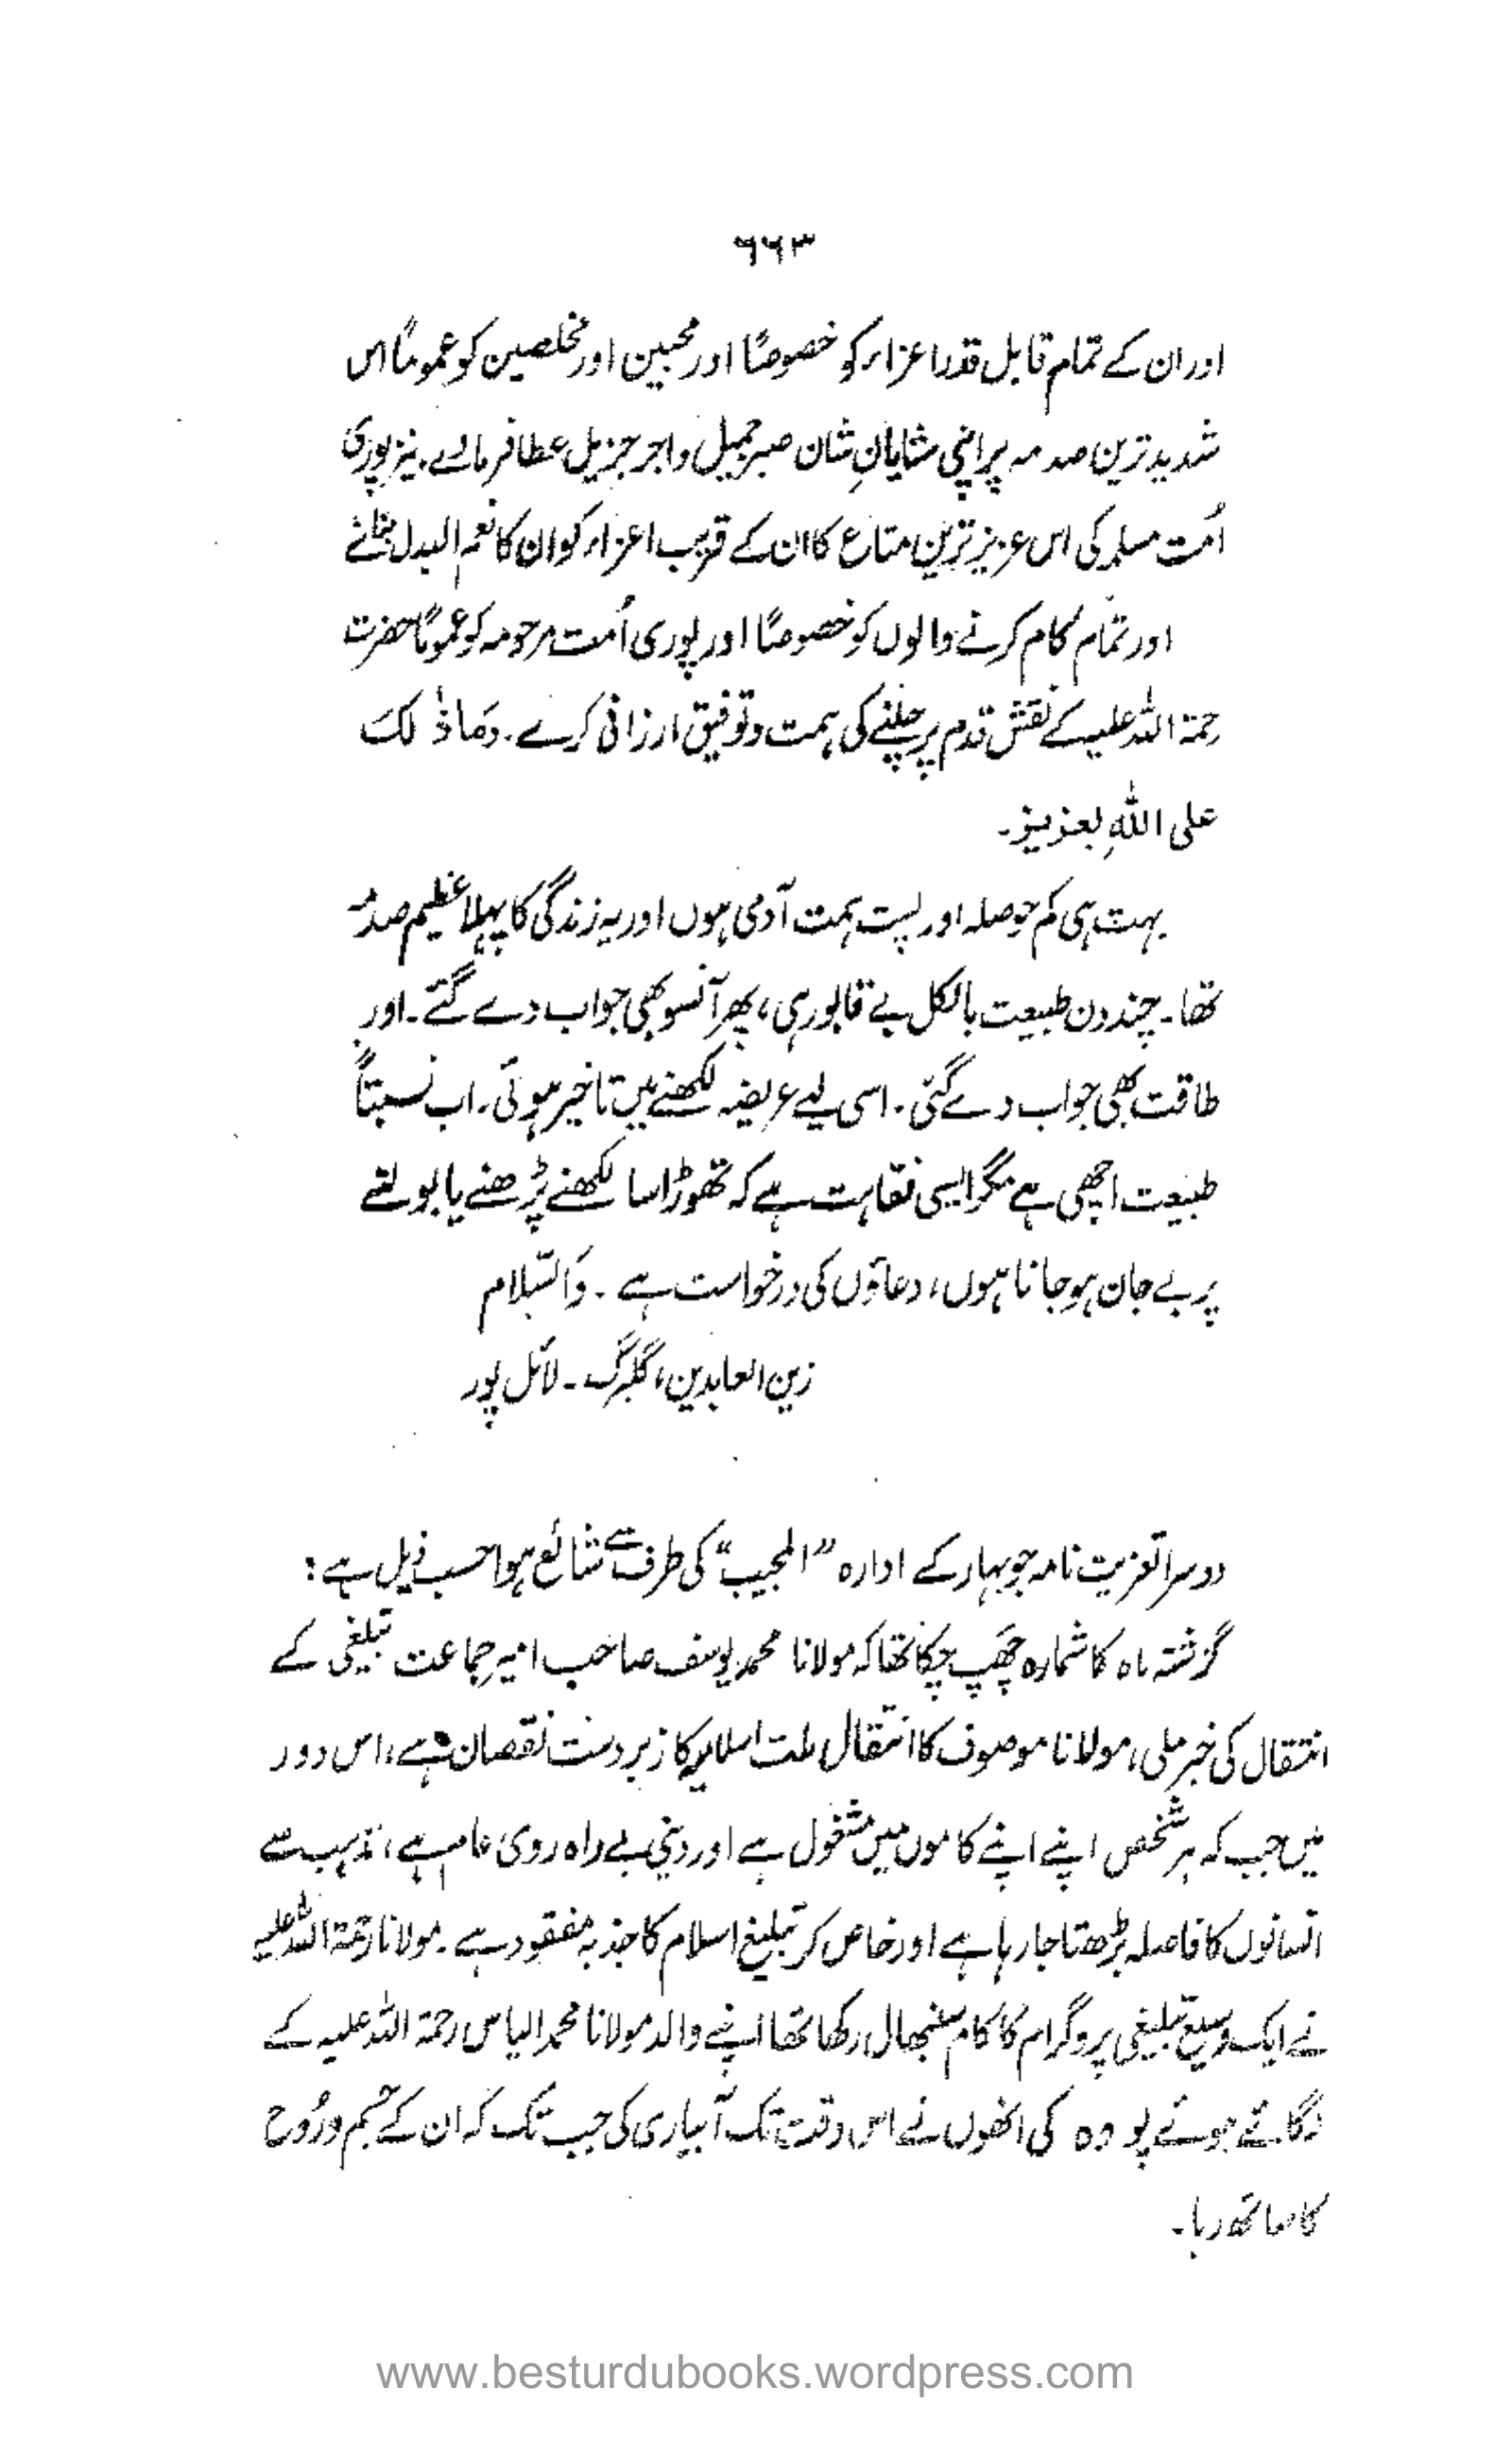 ۶۶۳
اور ان کے تمام قابل قدر اعزاء کو خصوصًا اور محبین اور مخلصین کو عمومًا اس
شدید ترین صدمہ پر اپنی شایانِ شان صبر جمیل و اجر جزیل عطا فرمائے۔ نیز پوری
اُمت مسلمہ کی اس عزیز ترین متاع کا ان کے قریب اعزاء کو ان کا نعم البدل بخشے
اور تمام کام کرنے والوں کو خصوصًا اور پوری اُمت مرحومہ کو عمومًا حضرت
رحمۃ اللہ علیہ کے نقش قدم پر چلنے کی ہمت و توفیق ارزانی کرے۔ وَمَا ذٰلک
علی اللّٰہِ بعزیز۔
بہت ہی کم حوصلہ اور پست ہمت آدمی ہوں اور یہ زندگی کا پہلا عظیم صدمہ
تھا۔ چند دن طبیعت بالکل بے قابو رہی، پھر آنسو بھی جواب دے گئے۔ اور
طاقت بھی جواب دے گئی۔ اسی لیے عریضہ لکھنے میں تاخیر ہوئی۔ اب نسبتاً
طبیعت اچھی ہے مگر ایسی نقاہت ہے کہ تھوڑا سا لکھنے پڑھنے یا بولنے
پر بے جان ہو جاتا ہوں، دعاؤں کی درخواست ہے۔ وَالسّلام
زین العابدین، گلبرگ۔ لائل پور
دوسرا تعزیت نامہ جو بہار کے ادارہ "المجیب" کی طرف سے شائع ہوا حسب ذیل ہے:
گزشتہ ماہ کا شمارہ چھَپ چکا تھا کہ مولانا محمد یوسف صاحب امیر جماعت تبلیغی کے
انتقال کی خبر ملی، مولانا موصوف کا انتقال ملت اسلامیہ کا زبردست نقصان ہے، اس دور
میں جب کہ ہر شخص اپنے اپنے کاموں میں مشغول ہے اور دینی بے راہ روی عام ہے، مذہب سے
انسانوں کا فاصلہ بڑھتا جا رہا ہے اور خاص کر تبلیغ اسلام کا جذبہ مفقود ہے۔ مولانا رحمۃ اللہ علیہ
نے ایک وسیع تبلیغی پروگرام کا کام سنبھال رکھا تھا اپنے والد مولانا محمد الیاس رحمۃ اللہ علیہ کے
لگائے ہوئے پودہ کی انھوں نے اس وقت تک آبیاری کی جب تک کہ ان کے جسم و رُوح
کا ساتھ رہا۔
www.besturdubooks.wordpress.com